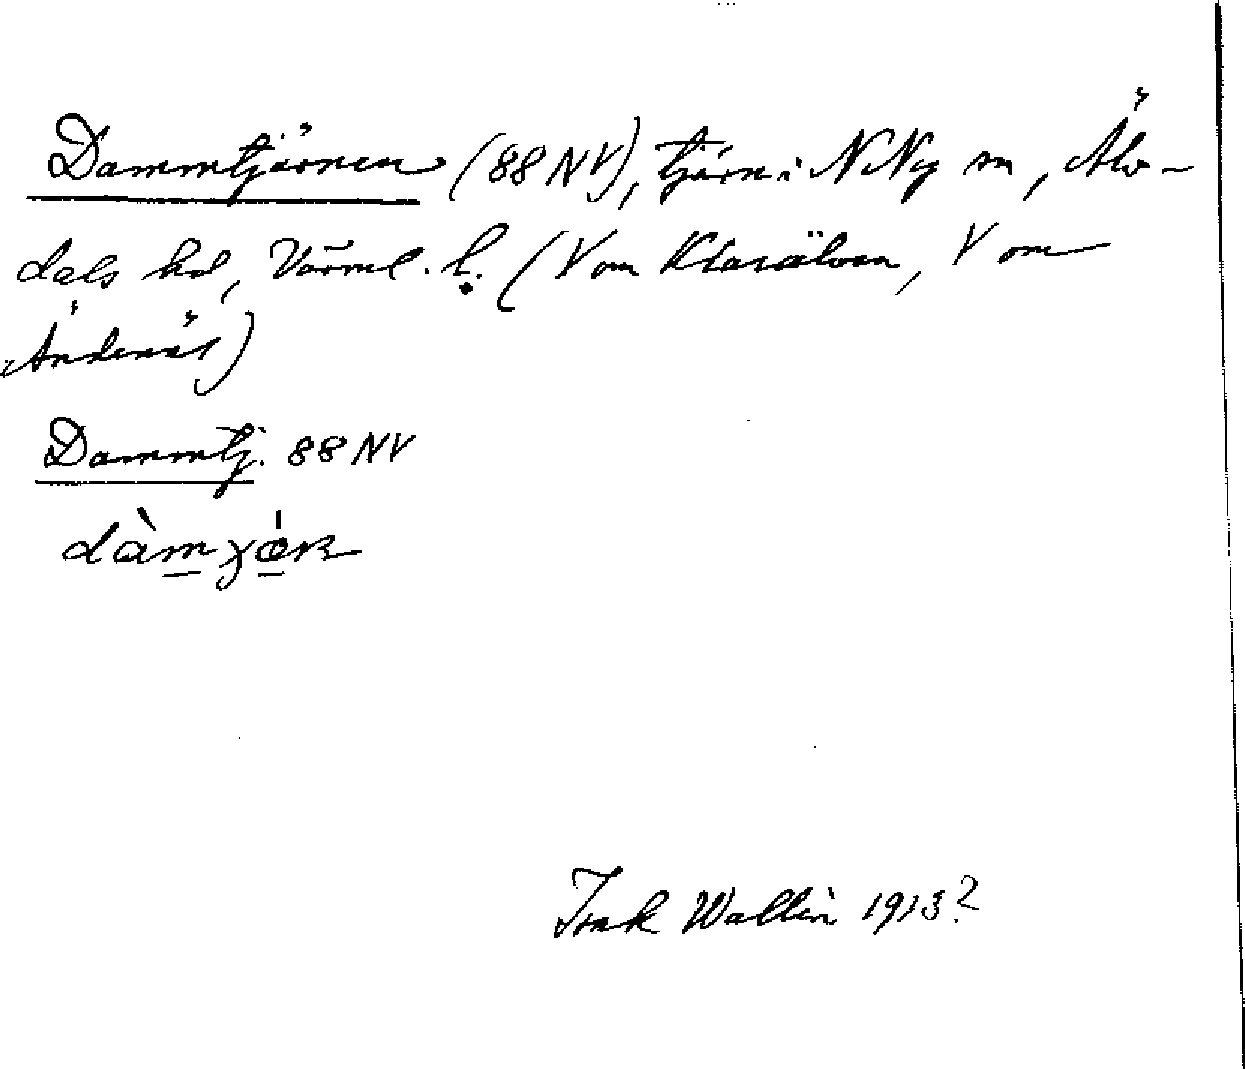 Dammtjärnen (88 NV), tjärn i N Ny sn, Älv-
dals hd, Värml. l. (V om Klarälven, V om
Ändenäs)
Dammtj. 88 NV
Isak Wallin 1913?